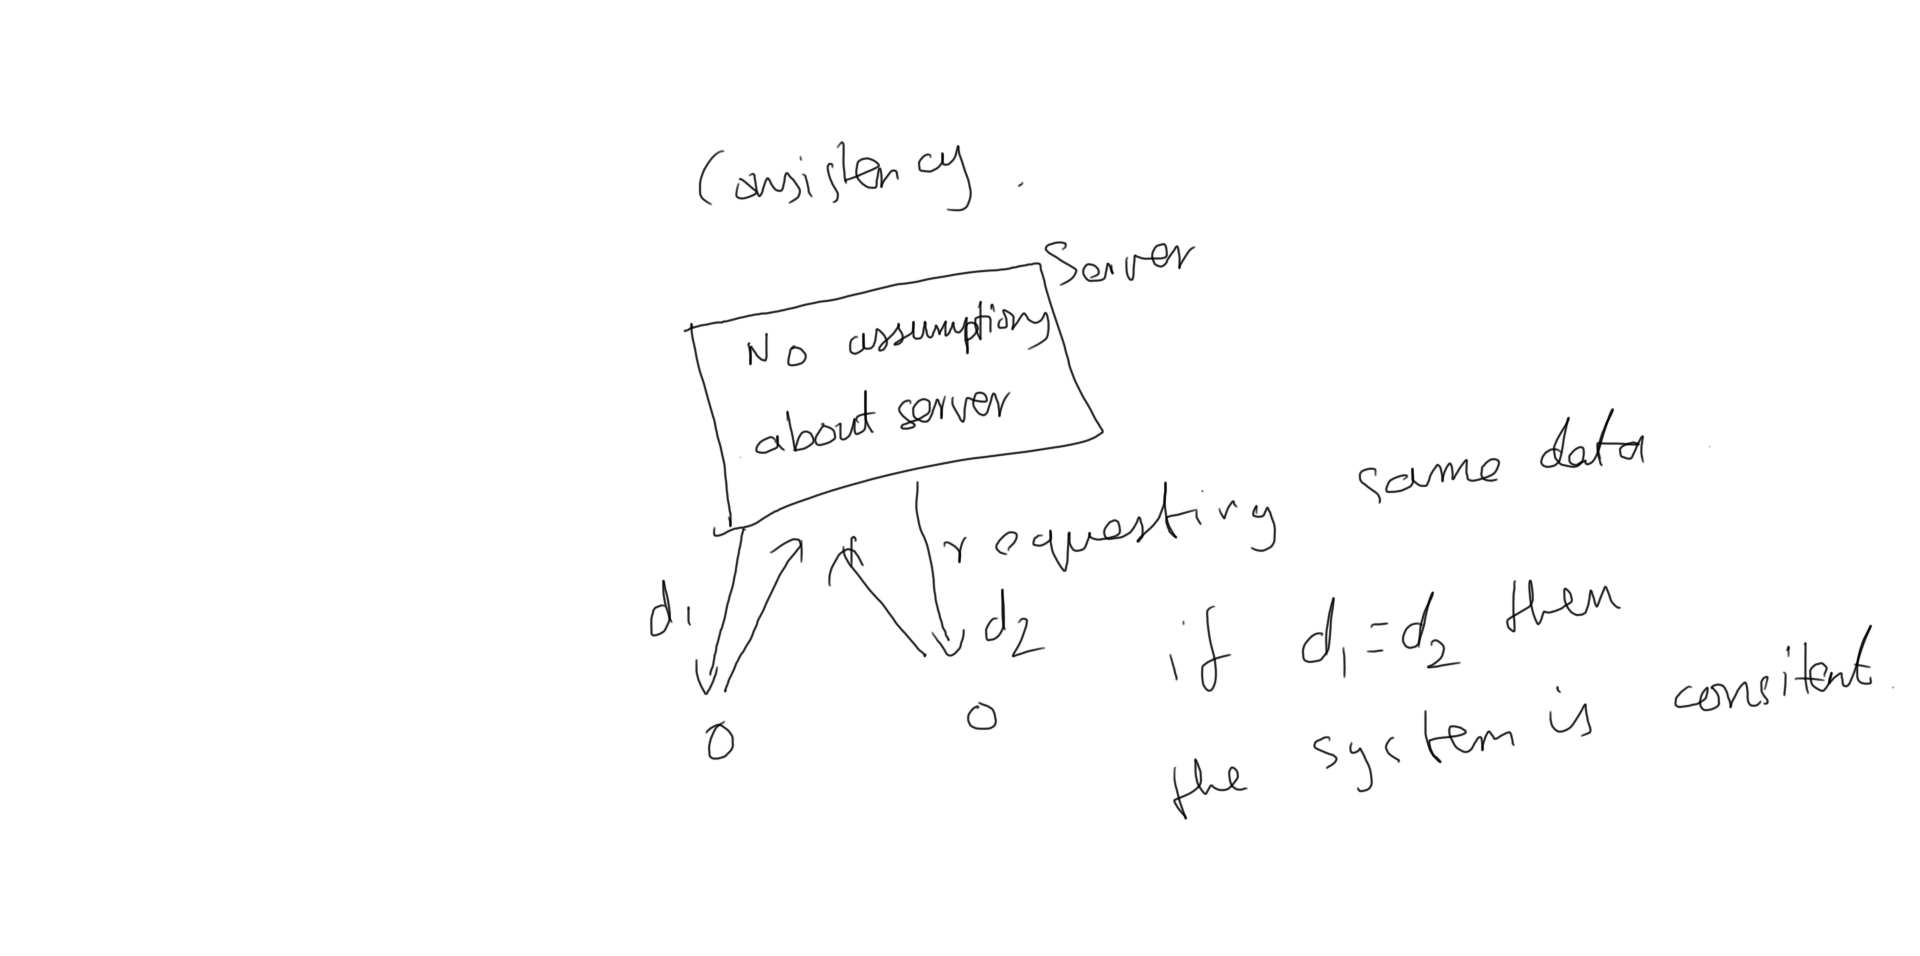 Consistency.
Server
No assumptions
about server
requesting same data
d1
d2
if d1=d2 then
the system is consitent.